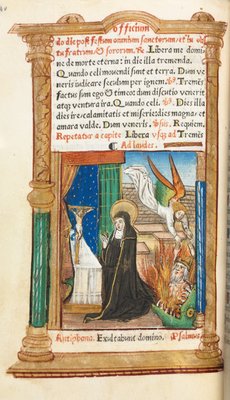 Officium
do die post festum omnium sanctorum/et in obi
tu fratrum & sororum. R. Libera me domi
ne de morte eterna: in die illa tremenda.
Quando celi mouendi sunt et terra. Dum ve
neris iudicare seculum per ignem. V. Tremēs
factus sum ego & timeo: dum discutio venerit
atq; ventura ira. Quando celi. V. Dies illa
dies ire/calamitatis et miserie: dies magna/et
amara valde. Dum veneris. Requiem.
Repetatur a capite Libera vsq; ad Tremēs
Ad laudes.
Antiphona. Exultabunt domino. Psalmus.